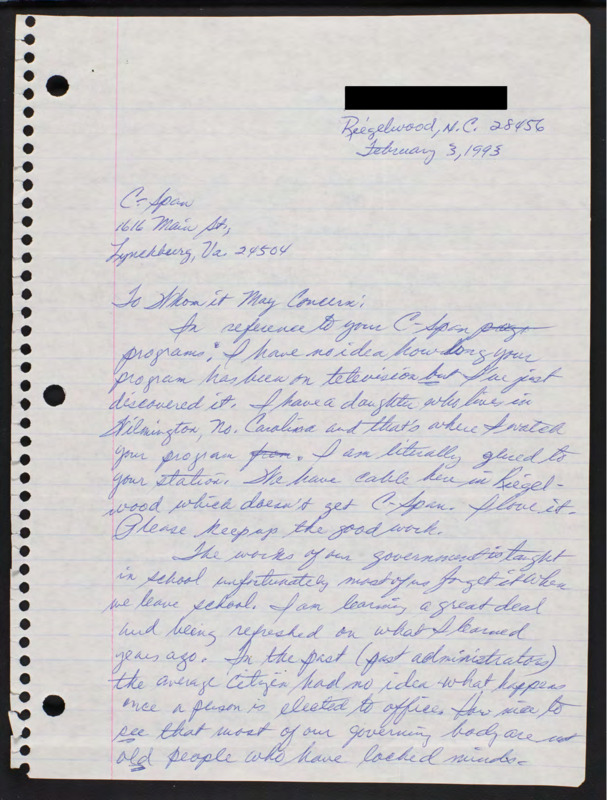 Riegelwood, N.C. 28456
February 3, 1993
C-Span
1616 Main St,
Lynchburg, Va. 24504
To Whom it May Concern:
In reference to your C-Span prog
programs; I have no idea how long your
program has been on television but I've just
discovered it. I have a daughter who lives in
Wilmington, No. Carolina and that's where I watch
your program from. I am literally glued to
your station. We have cable here in Riegel-
wood which doesn't get C-Span. I love it.
Please keep up the good work.
The works of our government is taught
in school unfortunately most of us forget it when
we leave school. I am learning a great deal
and being refreshed on what I learned
years ago. In the past (past administrators)
the average citizen had no idea what happens
once a person is elected to office. How nice to
see that most of our governing body are not
old people who have locked minds.